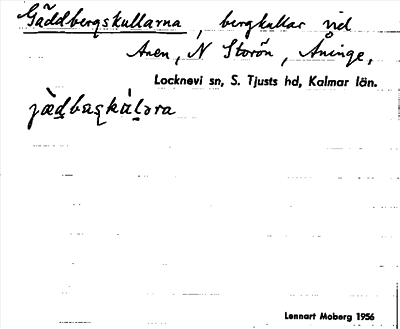 Gäddbergskullarna, bergkullar vid
Aven, N Storön, Åninge,
Locknevi sn, S. Tjusts hd, Kalmar län.
jæ̀d̲bæskàl̲əra
Lennart Moberg 1956